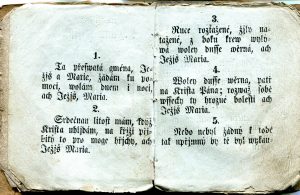 1.
Ta přeswatá gména, Je-
žjš a Maria, žádám ku po-
mocy, wolám dnem i nocý,
ach Ježjš, Maria.
2.
Srdečnau lítost mám, když
Krista uhljdám, na křjži při-
bitý to pro moge hřjchy, ach
Ježjš Maria.
3.
Ruce roztažené, žjly na-
tažené, z boku krew wylý-
wá woley dusse wěrná, ach
Ježjš, Maria.
4.
Woley dusse wěrná, patř
na Krista Pána; rozwaž sobě
wssecky ty hrozné bolesti ach
Ježjš, Maria.
5.
Nebo nebyl žádný k tobě
tak upřjmný by tě byl wykau-